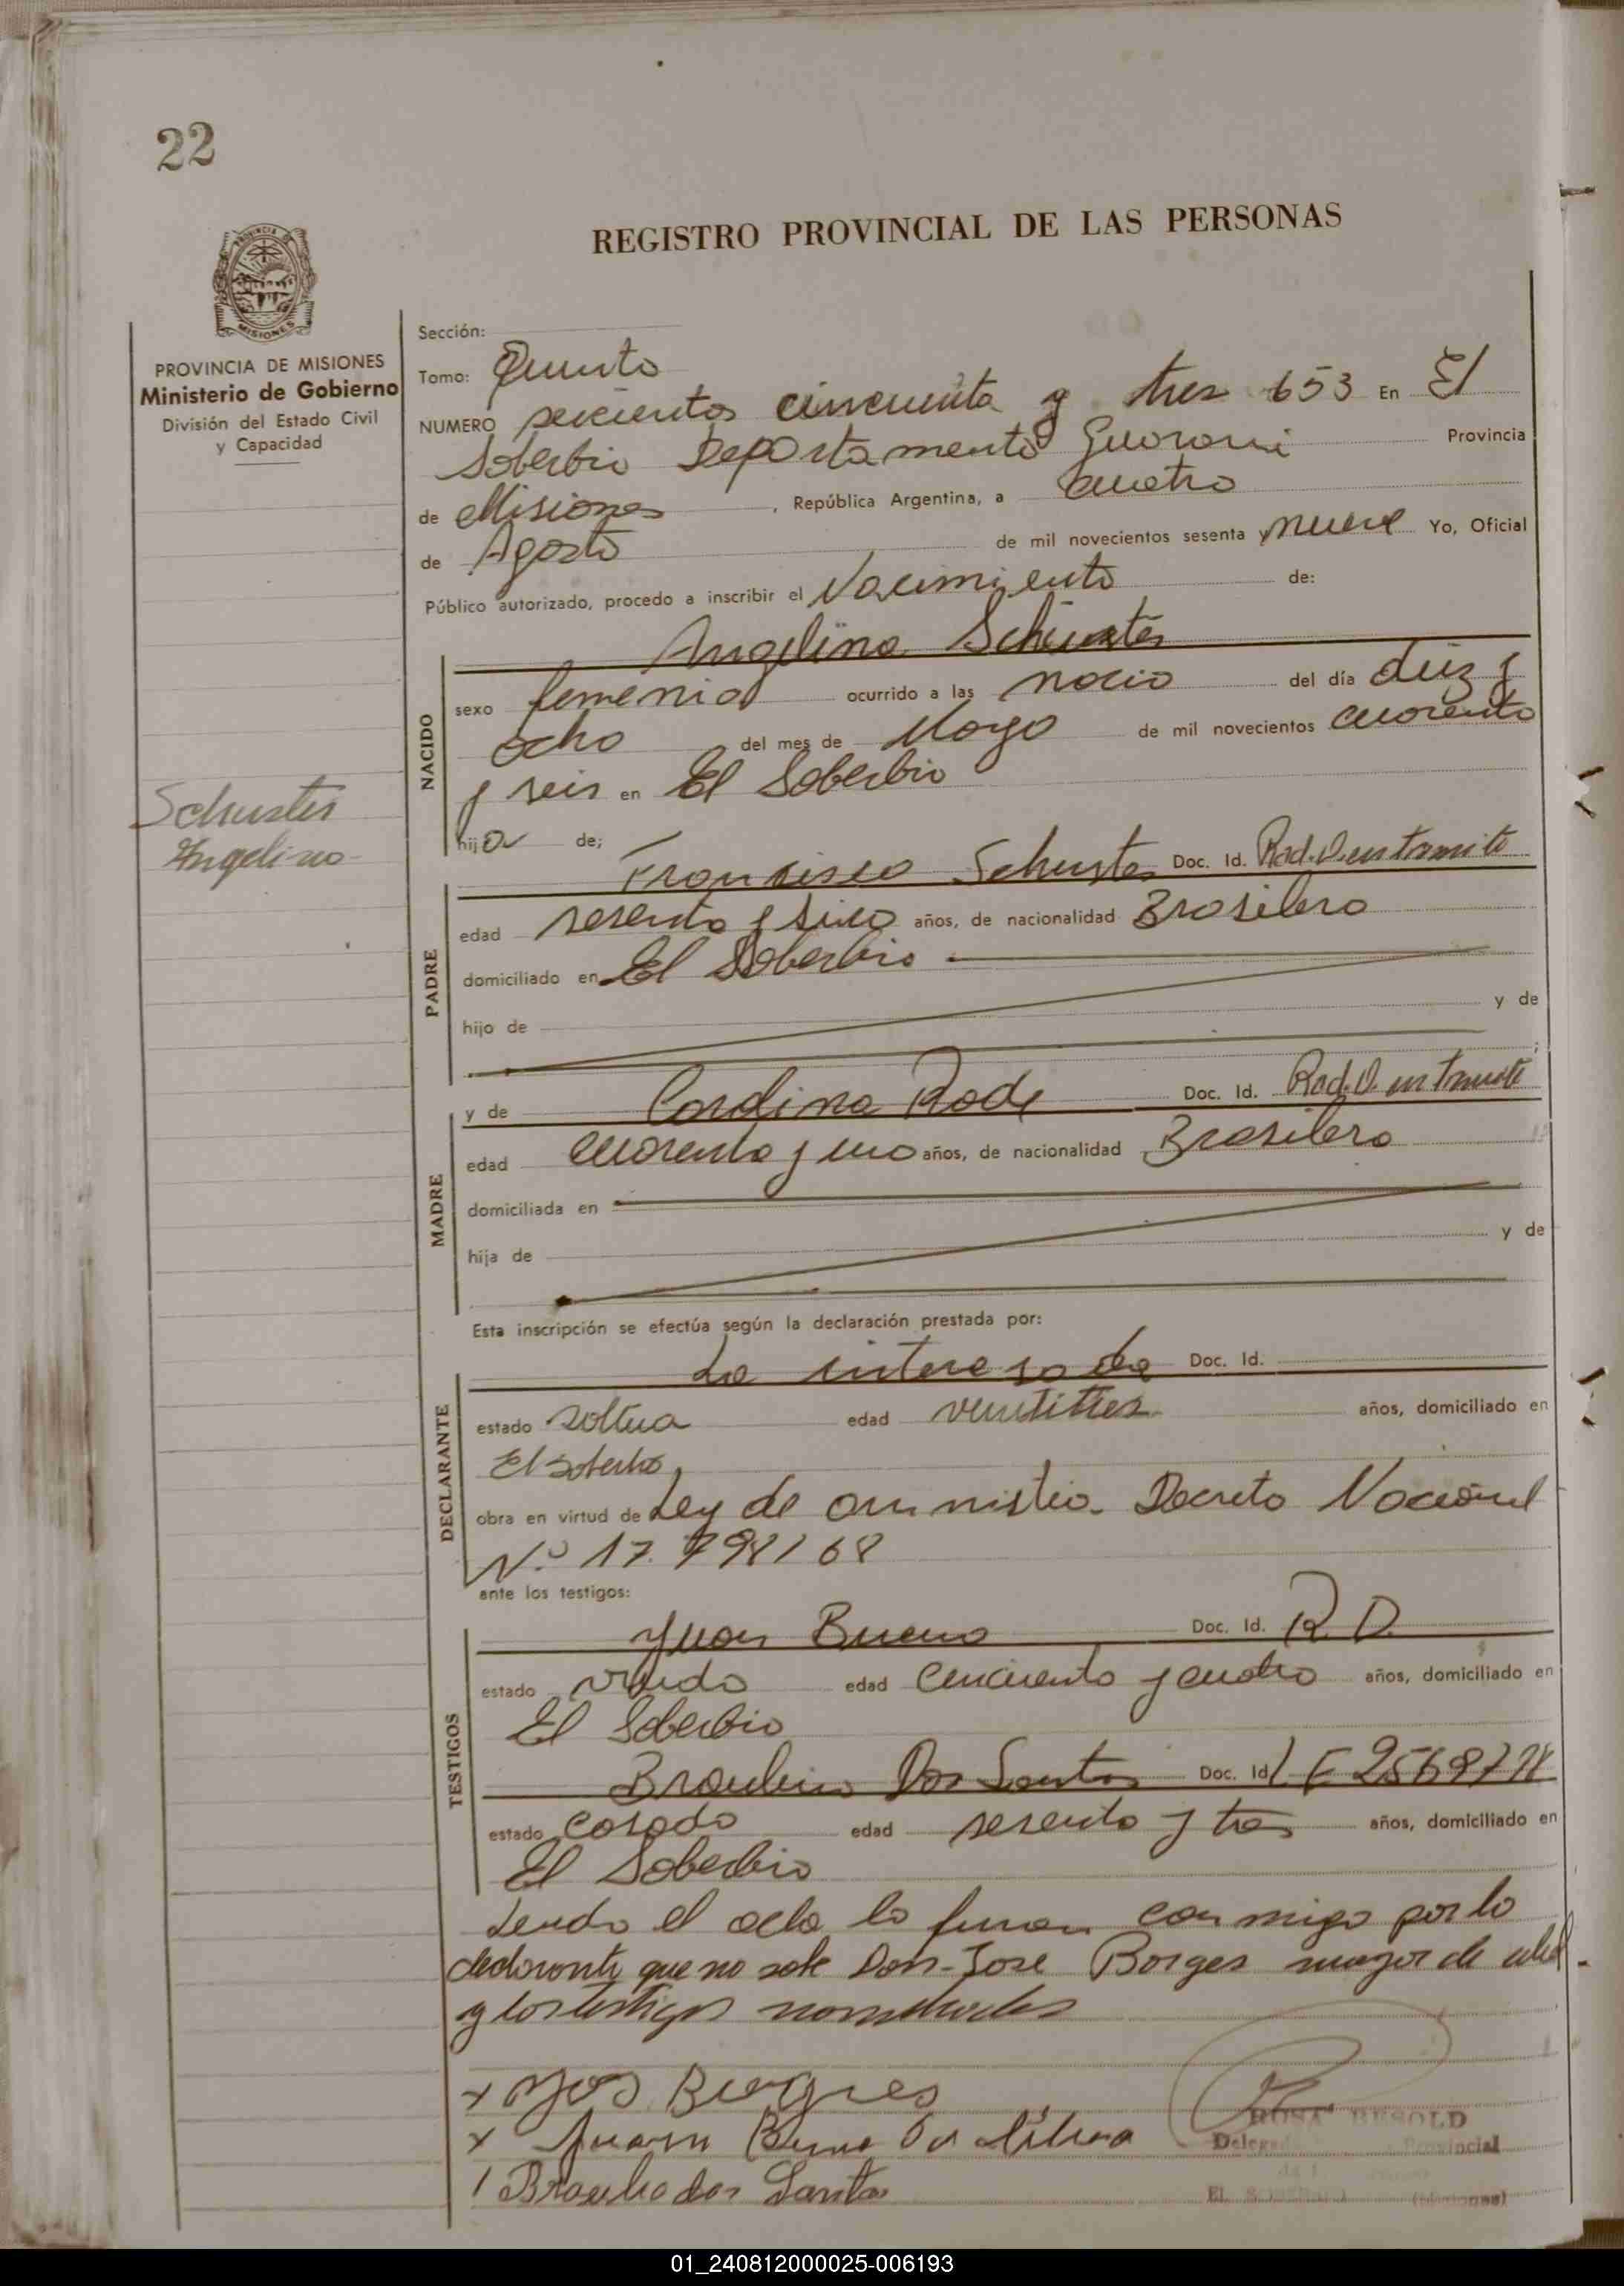 22
REGISTRO PROVINCIAL DE LAS PERSONAS
MISIONES
PROVINCIA DE MISIONES
Ministerio de Gobierno
División del Estado Civil
y Capacidad
Schuster
Angelina
Sección:
Tomo: Quinto
NUMERO seicientos cincuenta y tres 653 En El
Soberbio Departamento Guarani Provincia
de Misiones, República Argentina, a cuatro
de Agosto de mil novecientos sesenta y nueve Yo, Oficial
Público autorizado, procedo a inscribir el Nacimiento de:
Angelina Schuster
NACIDO
sexo femenia ocurrido a las del día diez y
ocho del mes de Mayo de mil novecientos cuarenta
y seis en El Soberbio
hija de;
Francisco Schuster Doc. Id. Rad. D. en tramite
PADRE
edad sesenta y años, de nacionalidad Brasilera
domiciliado en El Soberbio
hijo de y de
y de Cardina Rode Doc. Id. Rad. D. en tramite
MADRE
edad cuarenta y uno años, de nacionalidad Brasilera
domiciliada en
hija de y de
Esta inscripción se efectúa según la declaración prestada por:
La interesada Doc. Id.
DECLARANTE
estado soltera edad ventitres años, domiciliado en
El Soberbio
obra en virtud de Ley de amnistia Decreto Nacional
N.º 17.798/68
ante los testigos:
Juan Bueno Doc. Id. R. D.
TESTIGOS
estado viudo edad cincuenta y cuatro años, domiciliado en
El Soberbio
Braulino Dos Santos Doc. Id L E
estado casado edad sesenta y tres años, domiciliado en
El Soberbio
Leido el acta la firman conmigo por la
declarante que no sabe Don José Borges mayor de edad
y los testigos nombrados
x Jos Borges
x Juan Bueno Da Silva
Braulio dos Santos
ROSA BESOLD
Delegada Provincial
El (Misiones)
01_240812000025-006193